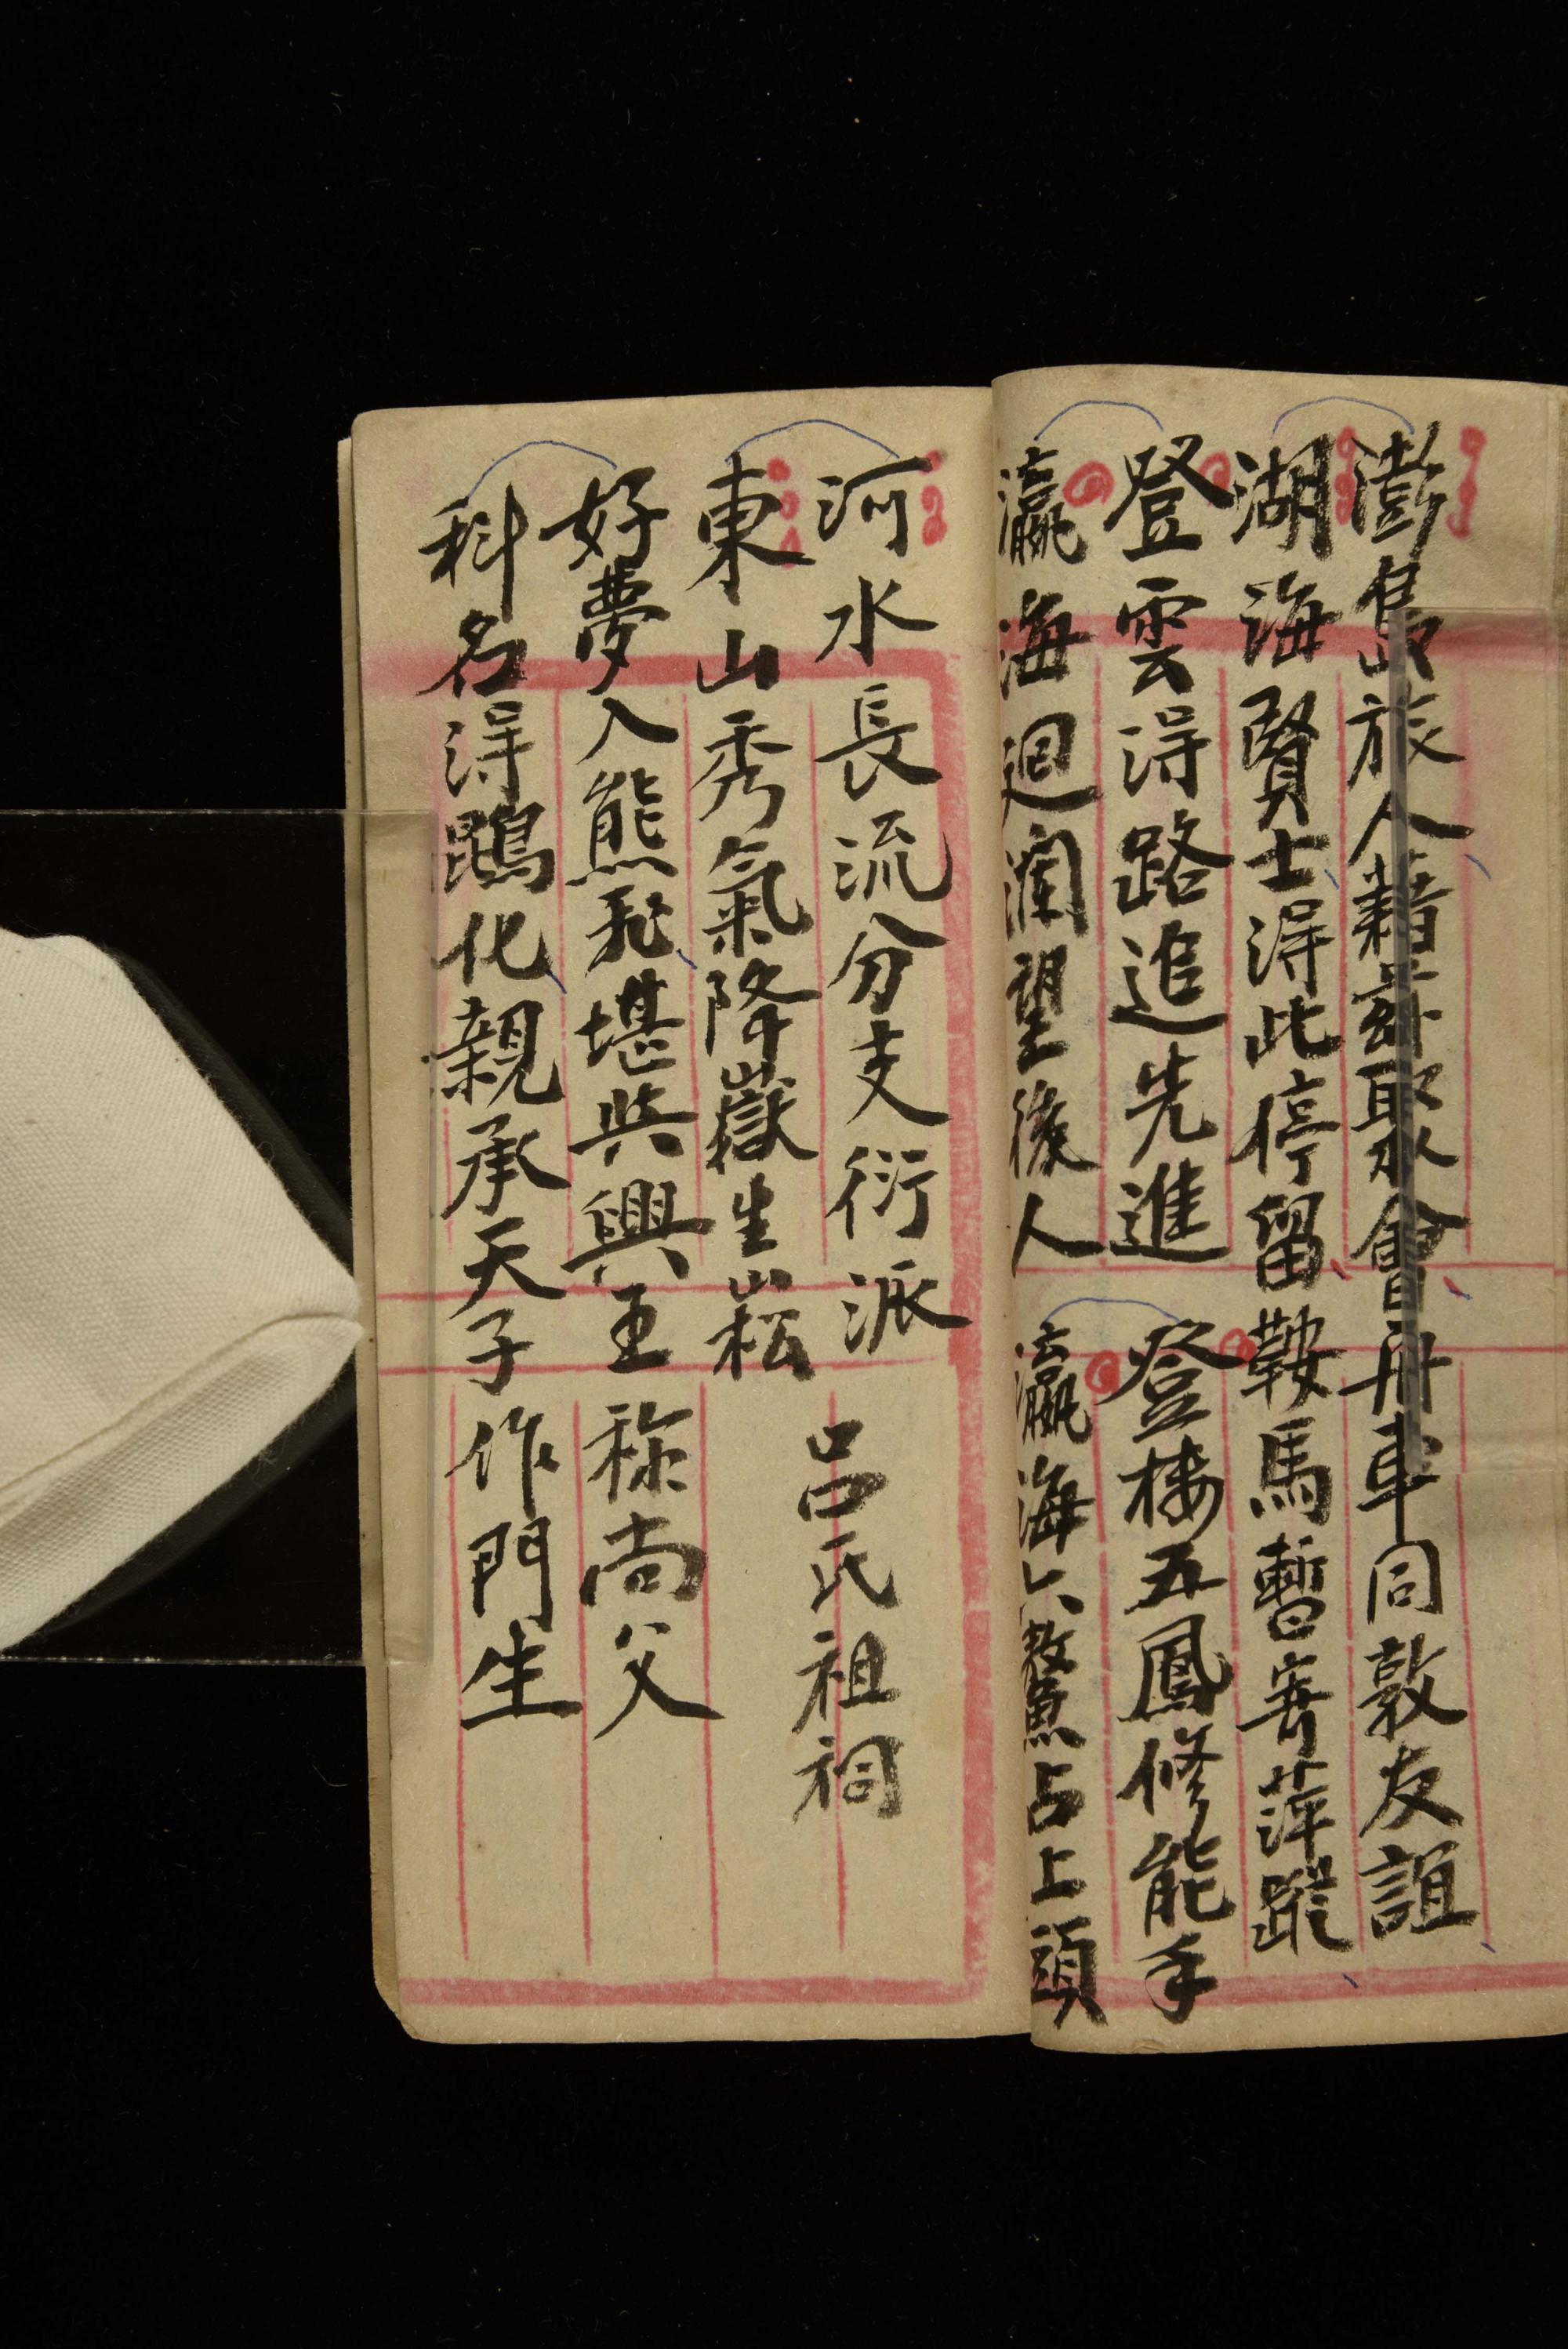 澎島旅人藉茲聚會舟車同敦友誼
湖海賢士淂此停留鞍馬暫寄萍蹤
登雲淂路追先進
瀛海迴瀾望後人
登楼五鳳修能手
瀛海六鰲占上頭
河水長流分支衍派
呂氏祖祠
東山秀氣降嶽生崧
好夢入熊飛堪與興王称尚父
科名淂鵾化親承天子作門生